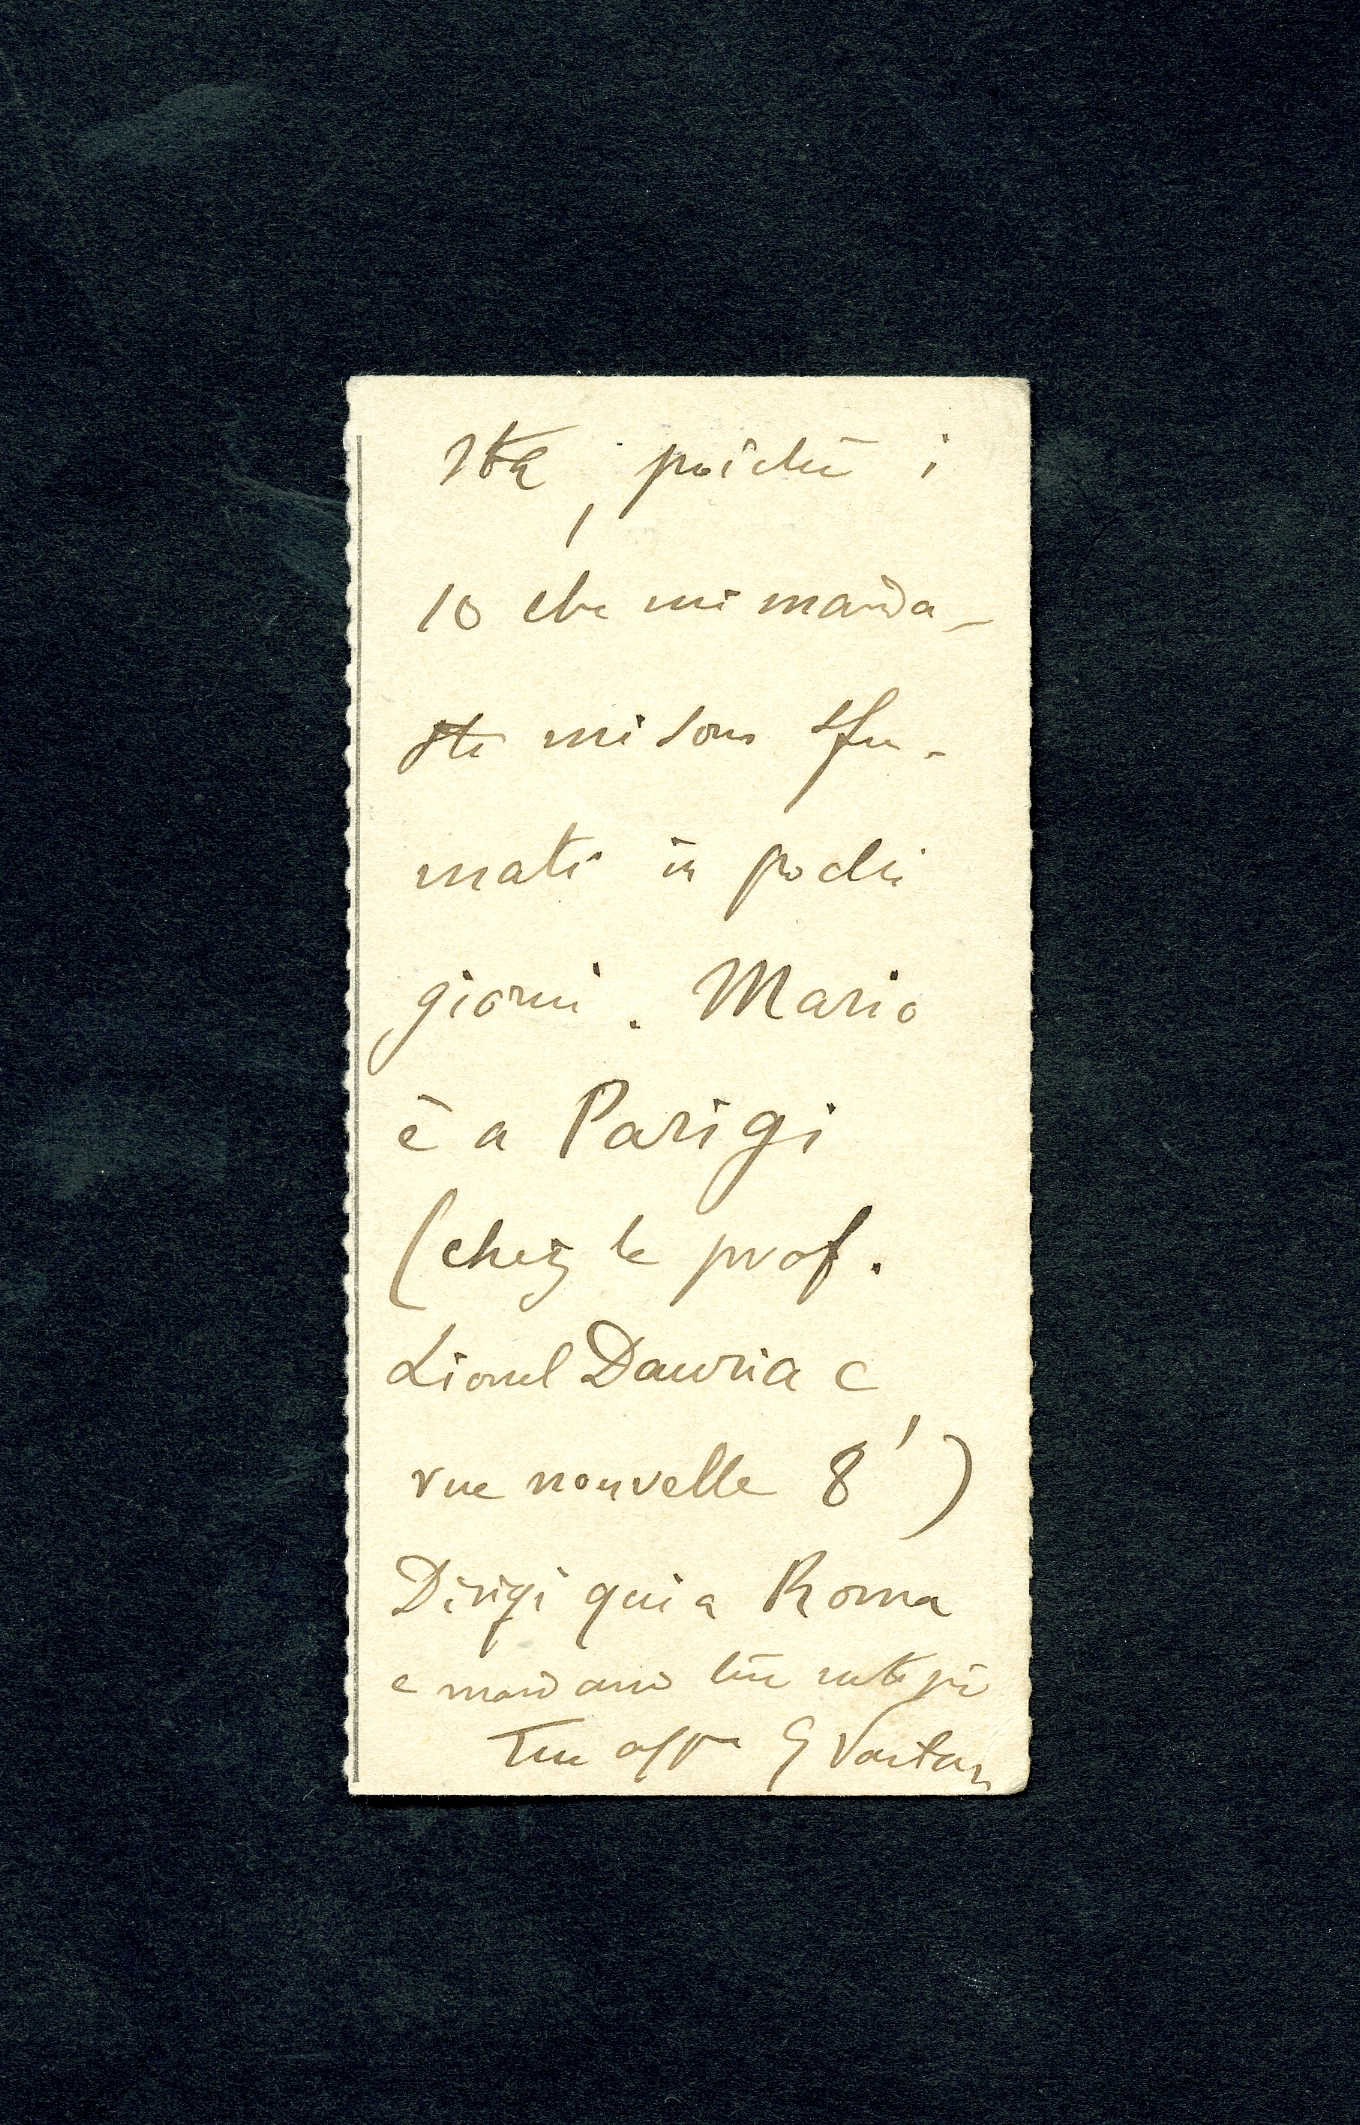 sta, poiché i
10 che mi manda-
ste mi sono sfu-
mati in pochi
giorni. Mario
è a Parigi
(chez le prof.
Lionel Dauria c
rue nouvelle 8')
Dirigi qui a Roma
e
Tuo aff G Vastan